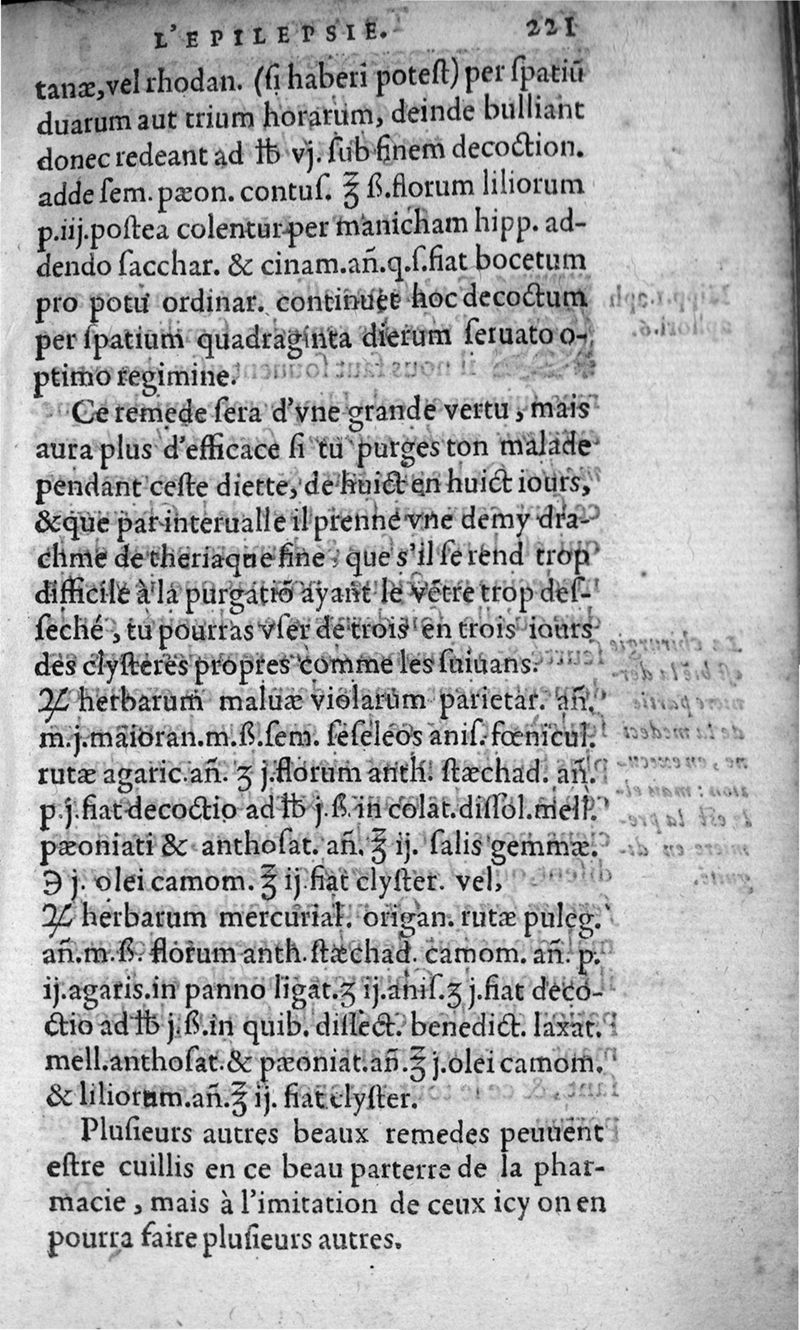 L'EPILEPSIE. 221
tanæ,vel rhodan. (ſi haberi poteſt) per ſpatiũ
duarum aut trium horarum, deinde bulliant
donec redeant ad ℔ vj. ſub finem decoction.
adde ſem. pæon. contuſ. ℥ ß. florum liliorum
p.iij.poſtea colentur per manicham hipp. ad-
dendo ſacchar. & cinam.an̄.q.ſ.fiat bocetum
pro potu ordinar. continuet hoc decoctum
per ſpatium quadraginta dierum ſeruato o-
ptimo regimine.
Ce remede ſera d'vne grande vertu, mais
aura plus d'efficace ſi tu purges ton malade
pendant ceſte diette, de huict en huict iours,
& que par interualle il prenne vne demy dra-
chme de theriaque fine : que s'il ſe rend trop
difficile à la purgatiõ ayant le vẽtre trop deſ-
ſeché, tu pourras vſer de trois en trois iours
des clyſteres propres comme les ſuiuans.
℞ herbarum maluæ violarum parietar. an̄.
m.j.maioran.m.ß.ſem. ſeſeleos aniſ. fœnicul.
rutæ agaric.an̄. ʒ j.florum anth. ſtæchad. an̄.
p.j.fiat decoctio ad ℔ j.ß. in colat.diſſol.mell.
pæoniati & anthoſat. an̄. ℥ ij. ſalis gemmæ.
℈ j. olei camom. ℥ ij fiat clyſter. vel,
℞ herbarum mercurial. origan. rutæ puleg.
an̄.m.ß. florum anth. ſtæchad. camom. an̄. p.
ij.agaris.in panno ligat.ʒ ij.aniſ.ʒ j.fiat deco-
ctio ad ℔ j.ß.in quib. diſſect. benedict. laxat.
mell.anthoſat.& pæoniat.an̄.℥ j.olei camom.
& liliorum.an̄.℥ ij. fiat clyſter.
Pluſieurs autres beaux remedes peuuent
eſtre cuillis en ce beau parterre de la phar-
macie, mais à l'imitation de ceux icy on en
pourra faire pluſieurs autres.